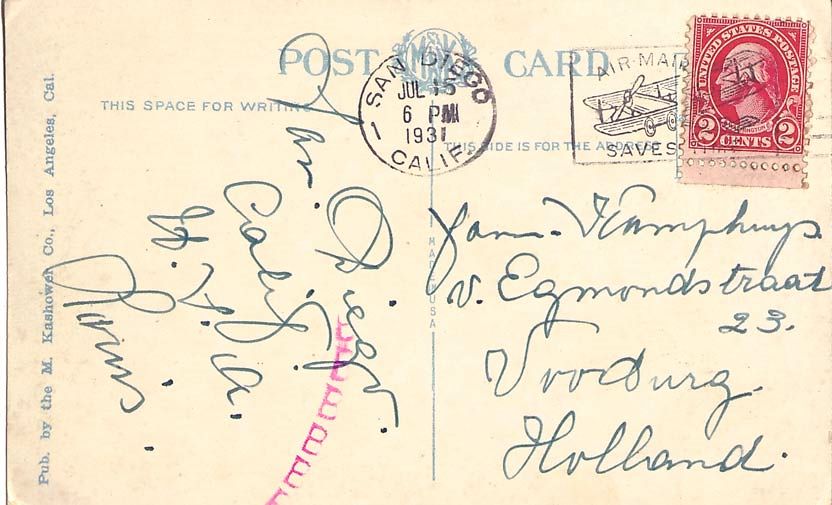 POST CARD
THIS SPACE FOR WRITING
THIS SIDE IS FOR THE ADDRESS
SAN DIEGO
JUL 15
6 PM
1931
CALIF.
1
AIR MAIL
SAVES
UNITED STATES POSTAGE
2 CENTS 2
San. Diego.
Calif.
U. S. A.
Fam. Kamphuys.
v. Egmondstraat
23.
Voorburg.
Holland.
MADE IN USA
Pub. by the M. Kashower Co., Los Angeles, Cal.